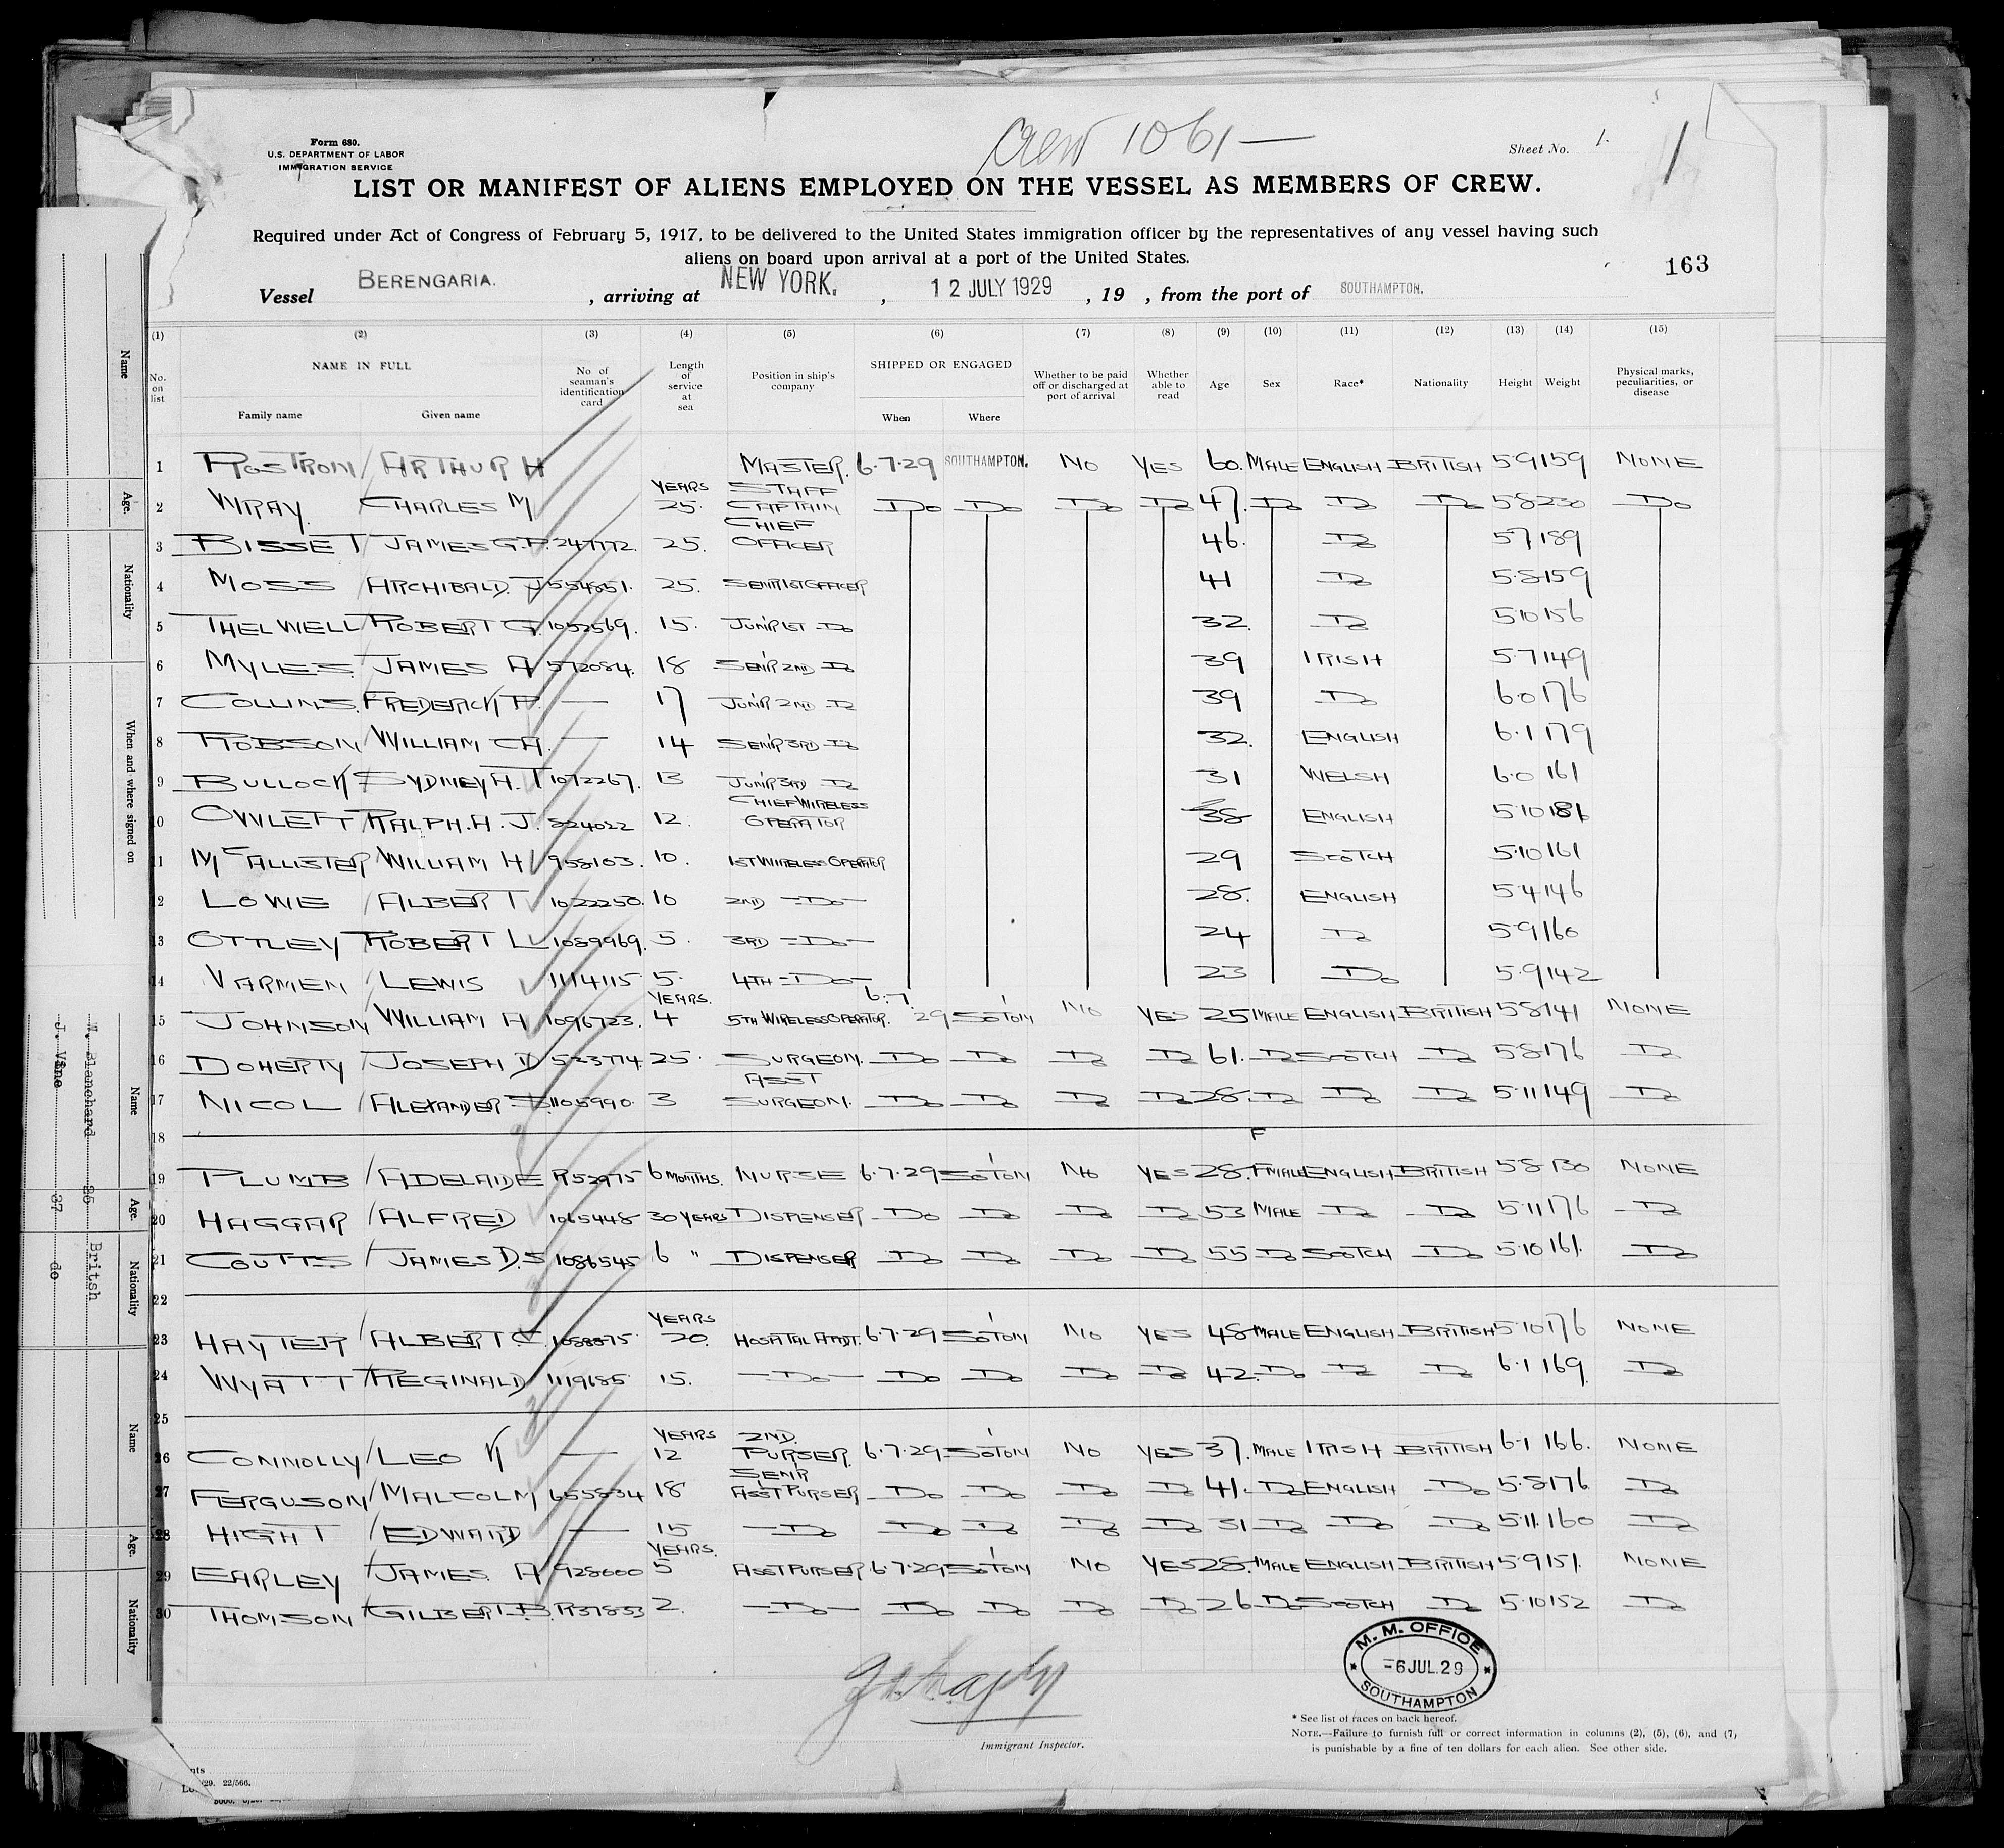 Crew 1061 —
Form 680.
U.S. DEPARTMENT OF LABOR
IMMIGRATION SERVICE
Sheet No. 1.
1
LIST OR MANIFEST OF ALIENS EMPLOYED ON THE VESSEL AS MEMBERS OF CREW.
Required under Act of Congress of February 5, 1917, to be delivered to the United States immigration officer by the representatives of any vessel having such
aliens on board upon arrival at a port of the United States.
163
Vessel BERENGARIA. , arriving at NEW YORK. , 12 JULY 1929 , 19 , from the port of SOUTHAMPTON.
(1) (2) (3) (4) (5) (6) (7) (8) (9) (10) (11) (12) (13) (14) (15)
No. on list NAME IN FULL Family name Given name No. of seaman's identification card Length of service at sea Position in ship's company SHIPPED OR ENGAGED When Where Whether to be paid off or discharged at port of arrival Whether able to read Age Sex Race* Nationality Height Weight Physical marks, peculiarities, or disease
1 ROSTRON / ARTHUR H MASTER. 6.7.29 SOUTHAMPTON. NO YES 60. MALE ENGLISH BRITISH 5.9 159 NONE
2 WRAY. CHARLES M YEARS 25. STAFF CAPTAIN Do Do Do Do 47. Do Do Do 5.8 230 Do
3 BISSET / JAMES G.P. 247772. 25. CHIEF OFFICER 46. Do 5.7 189
4 MOSS / ARCHIBALD. J 554851. 25. SENR 1ST OFFICER 41 Do 5.8 159
5 THELWELL / ROBERT G. 1052569. 15. JUNR 1ST Do 32. Do 5.10 156
6 MYLES. JAMES A 572084. 18 SENR 2ND Do 39 IRISH 5.7 149
7 COLLINS. FREDERICK P. — 17 JUNR 2ND Do 39 Do 6.0 176
8 ROBSON / WILLIAM CA. — 14 SENR 3RD Do 32. ENGLISH 6.1 179
9 BULLOCK / SYDNEY H. T 1072267. 13 JUNR 3RD Do 31 WELSH 6.0 161
10 OWLETT RALPH. H. J. 824022 12. CHIEF WIRELESS OPERATOR 38 ENGLISH 5.10 181
11 McALLISTER WILLIAM H 958103. 10. 1ST WIRELESS OPERATOR 29 SCOTCH 5.10 161
12 LOWE / ALBERT 1022250. 10 2ND —Do— 28. ENGLISH 5.4 146
13 OTTLEY ROBERT L 1089969. 5. 3RD —Do— 24 Do 5.9 160
14 VARMEN / LEWIS 1114115 5. 4TH —Do— 23 Do 5.9 142
15 JOHNSON WILLIAM A 1096723. YEARS. 4 5TH WIRELESS OPERATOR. 6.7.29 SO'TON NO YES 25 MALE ENGLISH BRITISH 5.8 141 NONE
16 DOHERTY / JOSEPH D 533774. 25. SURGEON. Do Do Do Do 61. Do SCOTCH Do 5.8 176 Do
17 NICOL / ALEXANDER 1105990. 3 ASST SURGEON. Do Do Do Do 28. Do Do Do 5.11 149 Do
18
19 PLUMB / ADELAIDE R52975 6 MONTHS. NURSE 6.7.29 SO'TON NO YES 28. F FMALE ENGLISH BRITISH 5.8 130 NONE
20 HAGGAR / ALFRED 1065448 30 YEARS DISPENSER Do Do Do Do 53 MALE Do Do 5.11 176 Do
21 COUTTS / JAMES D. S 1086545 6 " DISPENSER Do Do Do Do 55 Do SCOTCH Do 5.10 161. Do
22
23 HAYTER / ALBERT C. 1058875 YEARS 20. HOSPITAL ATTDT. 6.7.29 SO'TON NO YES 48 MALE ENGLISH BRITISH 5.10 176 NONE
24 WYATT / REGINALD 1119685 15. —Do— Do Do Do Do 42. Do Do Do 6.1 169. Do
25
26 CONNOLLY / LEO K — YEARS 12 2ND PURSER. 6.7.29 SO'TON NO YES 37. MALE IRISH BRITISH 6.1 166. NONE
27 FERGUSON / MALCOLM 655834 18 SENR ASST PURSER Do Do Do Do 41. Do ENGLISH Do 5.8 176 Do
28 HIGHT / EDWARD — 15 —Do Do Do Do Do 31 Do Do Do 5.11. 160 Do
29 EARLEY / JAMES. A 928000 YEARS. 5 ASST PURSER 6.7.29 SO'TON NO YES 28. MALE ENGLISH BRITISH 5.9 151. NONE
30 THOMSON / GILBERT. B. R37833 2. —Do— Do Do Do Do 26 Do SCOTCH Do 5.10 152 Do
M. M. OFFICE
-6 JUL. 29
SOUTHAMPTON
Immigrant Inspector.
* See list of races on back hereof.
NOTE.—Failure to furnish full or correct information in columns (2), (5), (6), and (7)
is punishable by a fine of ten dollars for each alien. See other side.
/29. 22/566.
Name
Age.
Nationality
When and where signed on
Name
Blanchard
J. Vine
Age.
26
37
Nationality
Britsh
do
Name
Age.
Nationality